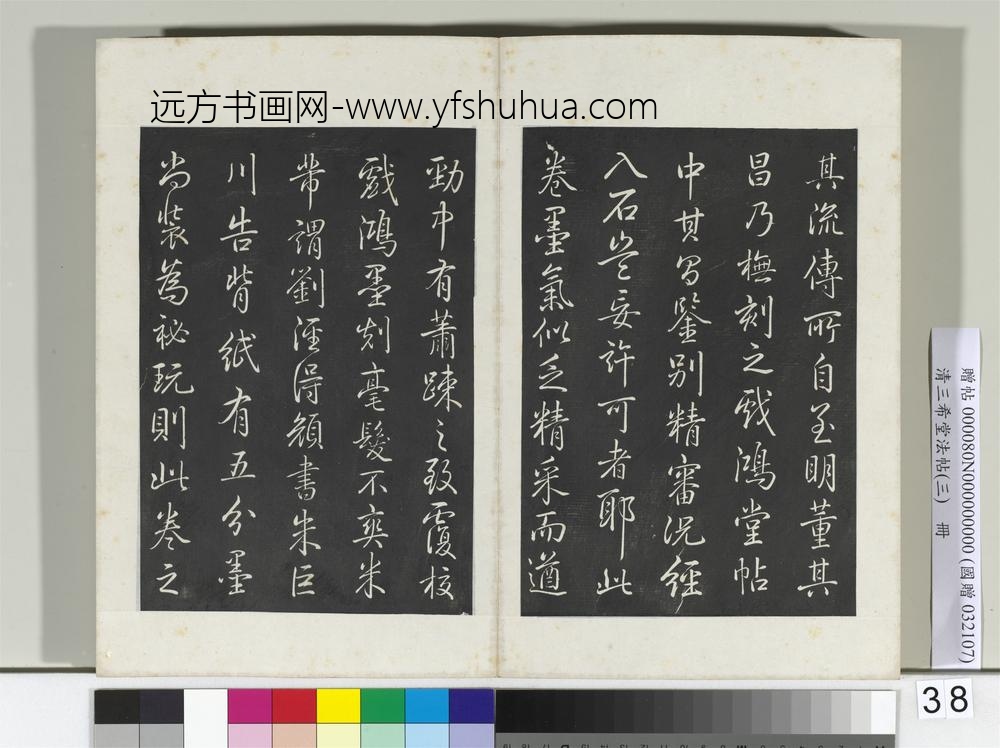 远方书画网-www.yfshuhua.com
其流傳所自至明董其
昌乃橅刻之戲鴻堂帖
中其昌鑒別精審況經
入石豈妄許可者耶此
卷墨氣似乏精采而遒
勁中有蕭疎之致覆校
戲鴻墨刻毫髮不爽米
芾謂劉涇得顏書朱巨
川告背紙有五分墨
尚裝為祕玩則此卷之
贈帖 0000080N000000000 (國贈 032107)
清三希堂法帖(三) 冊
38